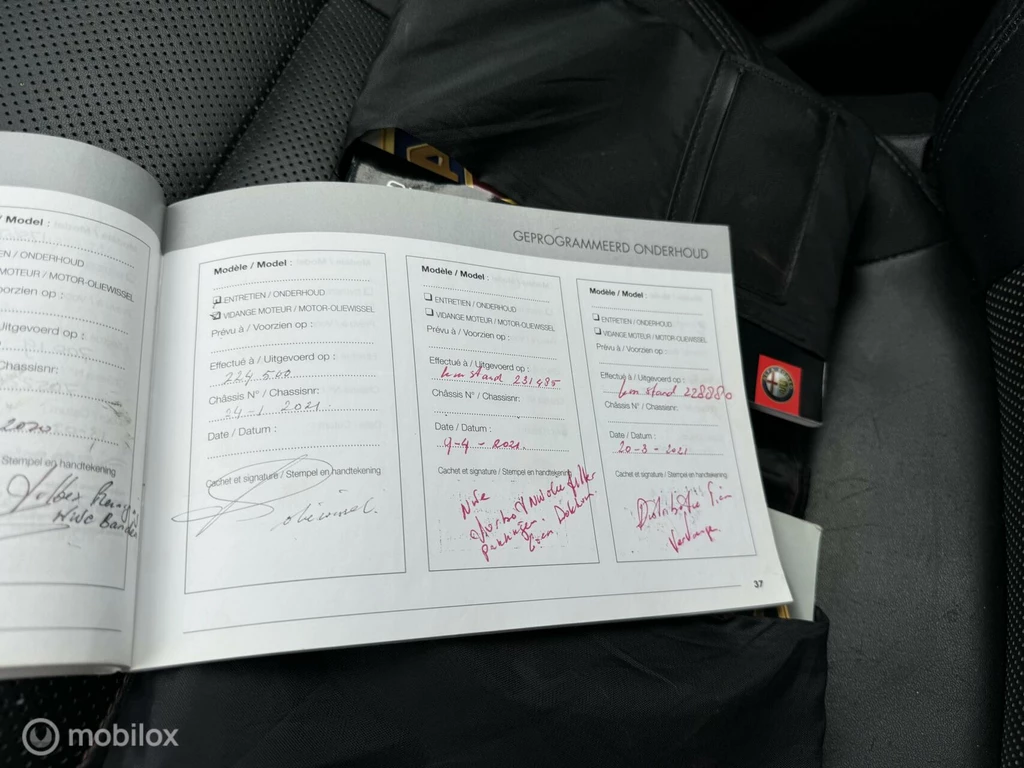 GEPROGRAMMEERD ONDERHOUD
/ Model :
EN / ONDERHOUD
MOTEUR / MOTOR-OLIEWISSEL
orzien op :
Uitgevoerd op :
Chassisnr:
2020
Stempel en handtekening
Nwe Banden
Modèle / Model :
ENTRETIEN / ONDERHOUD
VIDANGE MOTEUR / MOTOR-OLIEWISSEL
Prévu à / Voorzien op :
Effectué à / Uitgevoerd op :
224 500
Châssis N° / Chassisnr:
24-1 2021
Date / Datum :
Cachet et signature / Stempel en handtekening
oliewissel.
Modèle / Model :
ENTRETIEN / ONDERHOUD
VIDANGE MOTEUR / MOTOR-OLIEWISSEL
Prévu à / Voorzien op :
Effectué à / Uitgevoerd op :
km stand 231485
Châssis N° / Chassisnr:
Date / Datum :
9-4-2021.
Cachet et signature / Stempel en handtekening
Nwe
Pakkingen
Modèle / Model :
ENTRETIEN / ONDERHOUD
VIDANGE MOTEUR / MOTOR-OLIEWISSEL
Prévu à / Voorzien op :
Effectué à / Uitgevoerd op :
km stand 228880
Châssis N° / Chassisnr:
Date / Datum :
20-3-2021
Cachet et signature / Stempel en handtekening
Distributie Riem
Vervangen
37
mobilox